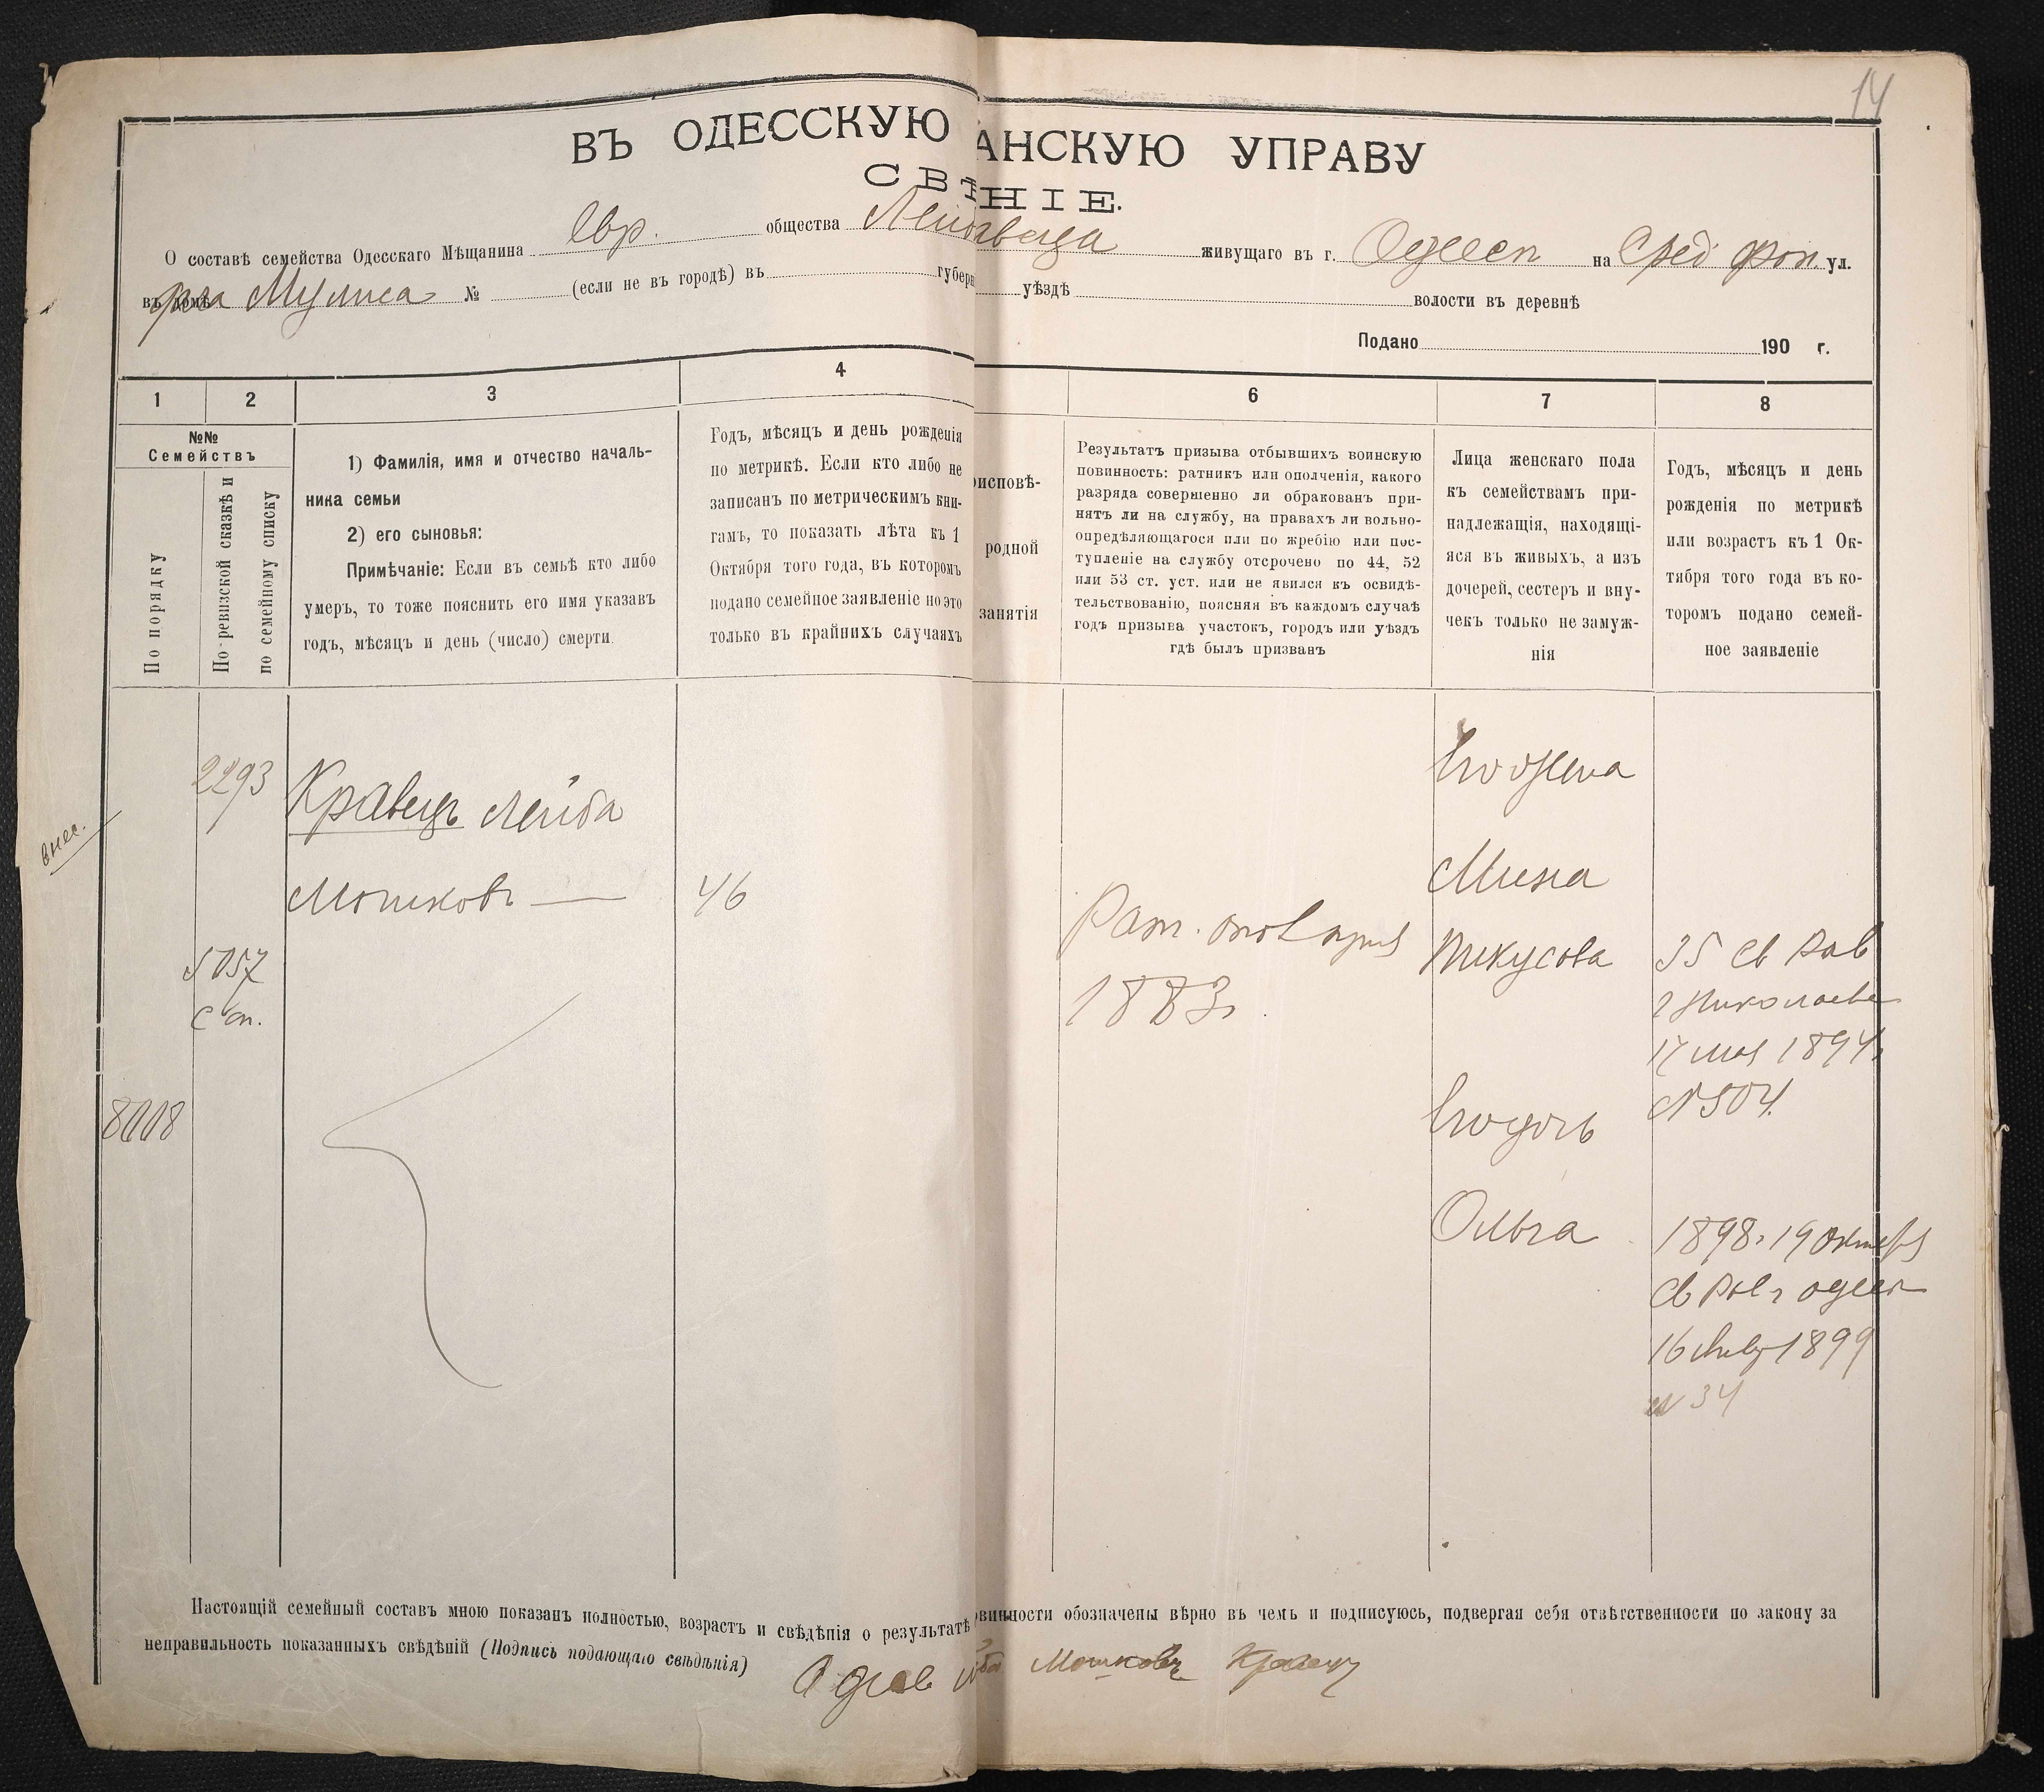 14
ВЪ ОДЕССКУЮ АНСКУЮ УПРАВУ
СВѢ НІЕ.
О составѣ семейства Одесскаго Мѣщанина Евр. общества живущаго въ г. Одессѣ на Сред фон. ул.
въ домѣ № (если не въ городѣ) въ губерн уѣздѣ волости въ деревнѣ
Подано 190 г.
1 2 3 4 6 7 8
№№
Семействъ
По порядку
По ревизской сказкѣ и
по семейному списку
1) Фамилія, имя и отчество началь-
ника семьи
2) его сыновья:
Примѣчаніе: Если въ семьѣ кто либо
умеръ, то тоже пояснить его имя указавъ
годъ, мѣсяцъ и день (число) смерти.
Годъ, мѣсяцъ и день рожденія
по метрикѣ. Если кто либо не
записанъ по метрическимъ кни-
гамъ, то показать лѣта къ 1
Октября того года, въ которомъ
подано семейное заявленіе но это
только въ крайнихъ случаяхъ
оисповѣ-
родной
занятія
Результатъ призыва отбывшихъ воинскую
повинность: ратникъ или ополченія, какого
разряда совершенно ли обракованъ при-
нятъ ли на службу, на правахъ ли вольно-
опредѣляющагося или по жребію или пос-
тупленіе на службу отсрочено по 44, 52
или 53 ст. уст. или не явился къ освидѣ-
тельствованію, поясняя въ каждомъ случаѣ
годъ призыва участокъ, городъ или уѣздъ
гдѣ былъ призванъ
Лица женскаго пола
къ семействамъ при-
надлежащія, находящі-
яся въ живыхъ, а изъ
дочерей, сестеръ и вну-
чекъ только не замуж-
нія
Годъ, мѣсяцъ и день
рожденія по метрикѣ
или возрастъ къ 1 Ок-
тября того года въ ко-
торомъ подано семей-
ное заявленіе
внес.
2293 Кравецъ Лейба
Мошковъ — 46
5057
с сп.
8008
Рат.
1883г.
Его жена
Мина
Пикусова
35 Св Рав
г Николаева
17 мая 1894г
№504.
Его дочь
Ольга
1898г 19 октября
Св Рав г Одесс
16 Янв 1899
№ 34
Настоящій семейный составъ мною показанъ полностью, возрастъ и свѣдѣнія о результатѣ овинности обозначены вѣрно въ чемъ и подписуюсь, подвергая себя отвѣтственности по закону за
неправильность показанныхъ свѣдѣній (Подпись подающаго свѣдѣнія)
Мошковъ Кравец